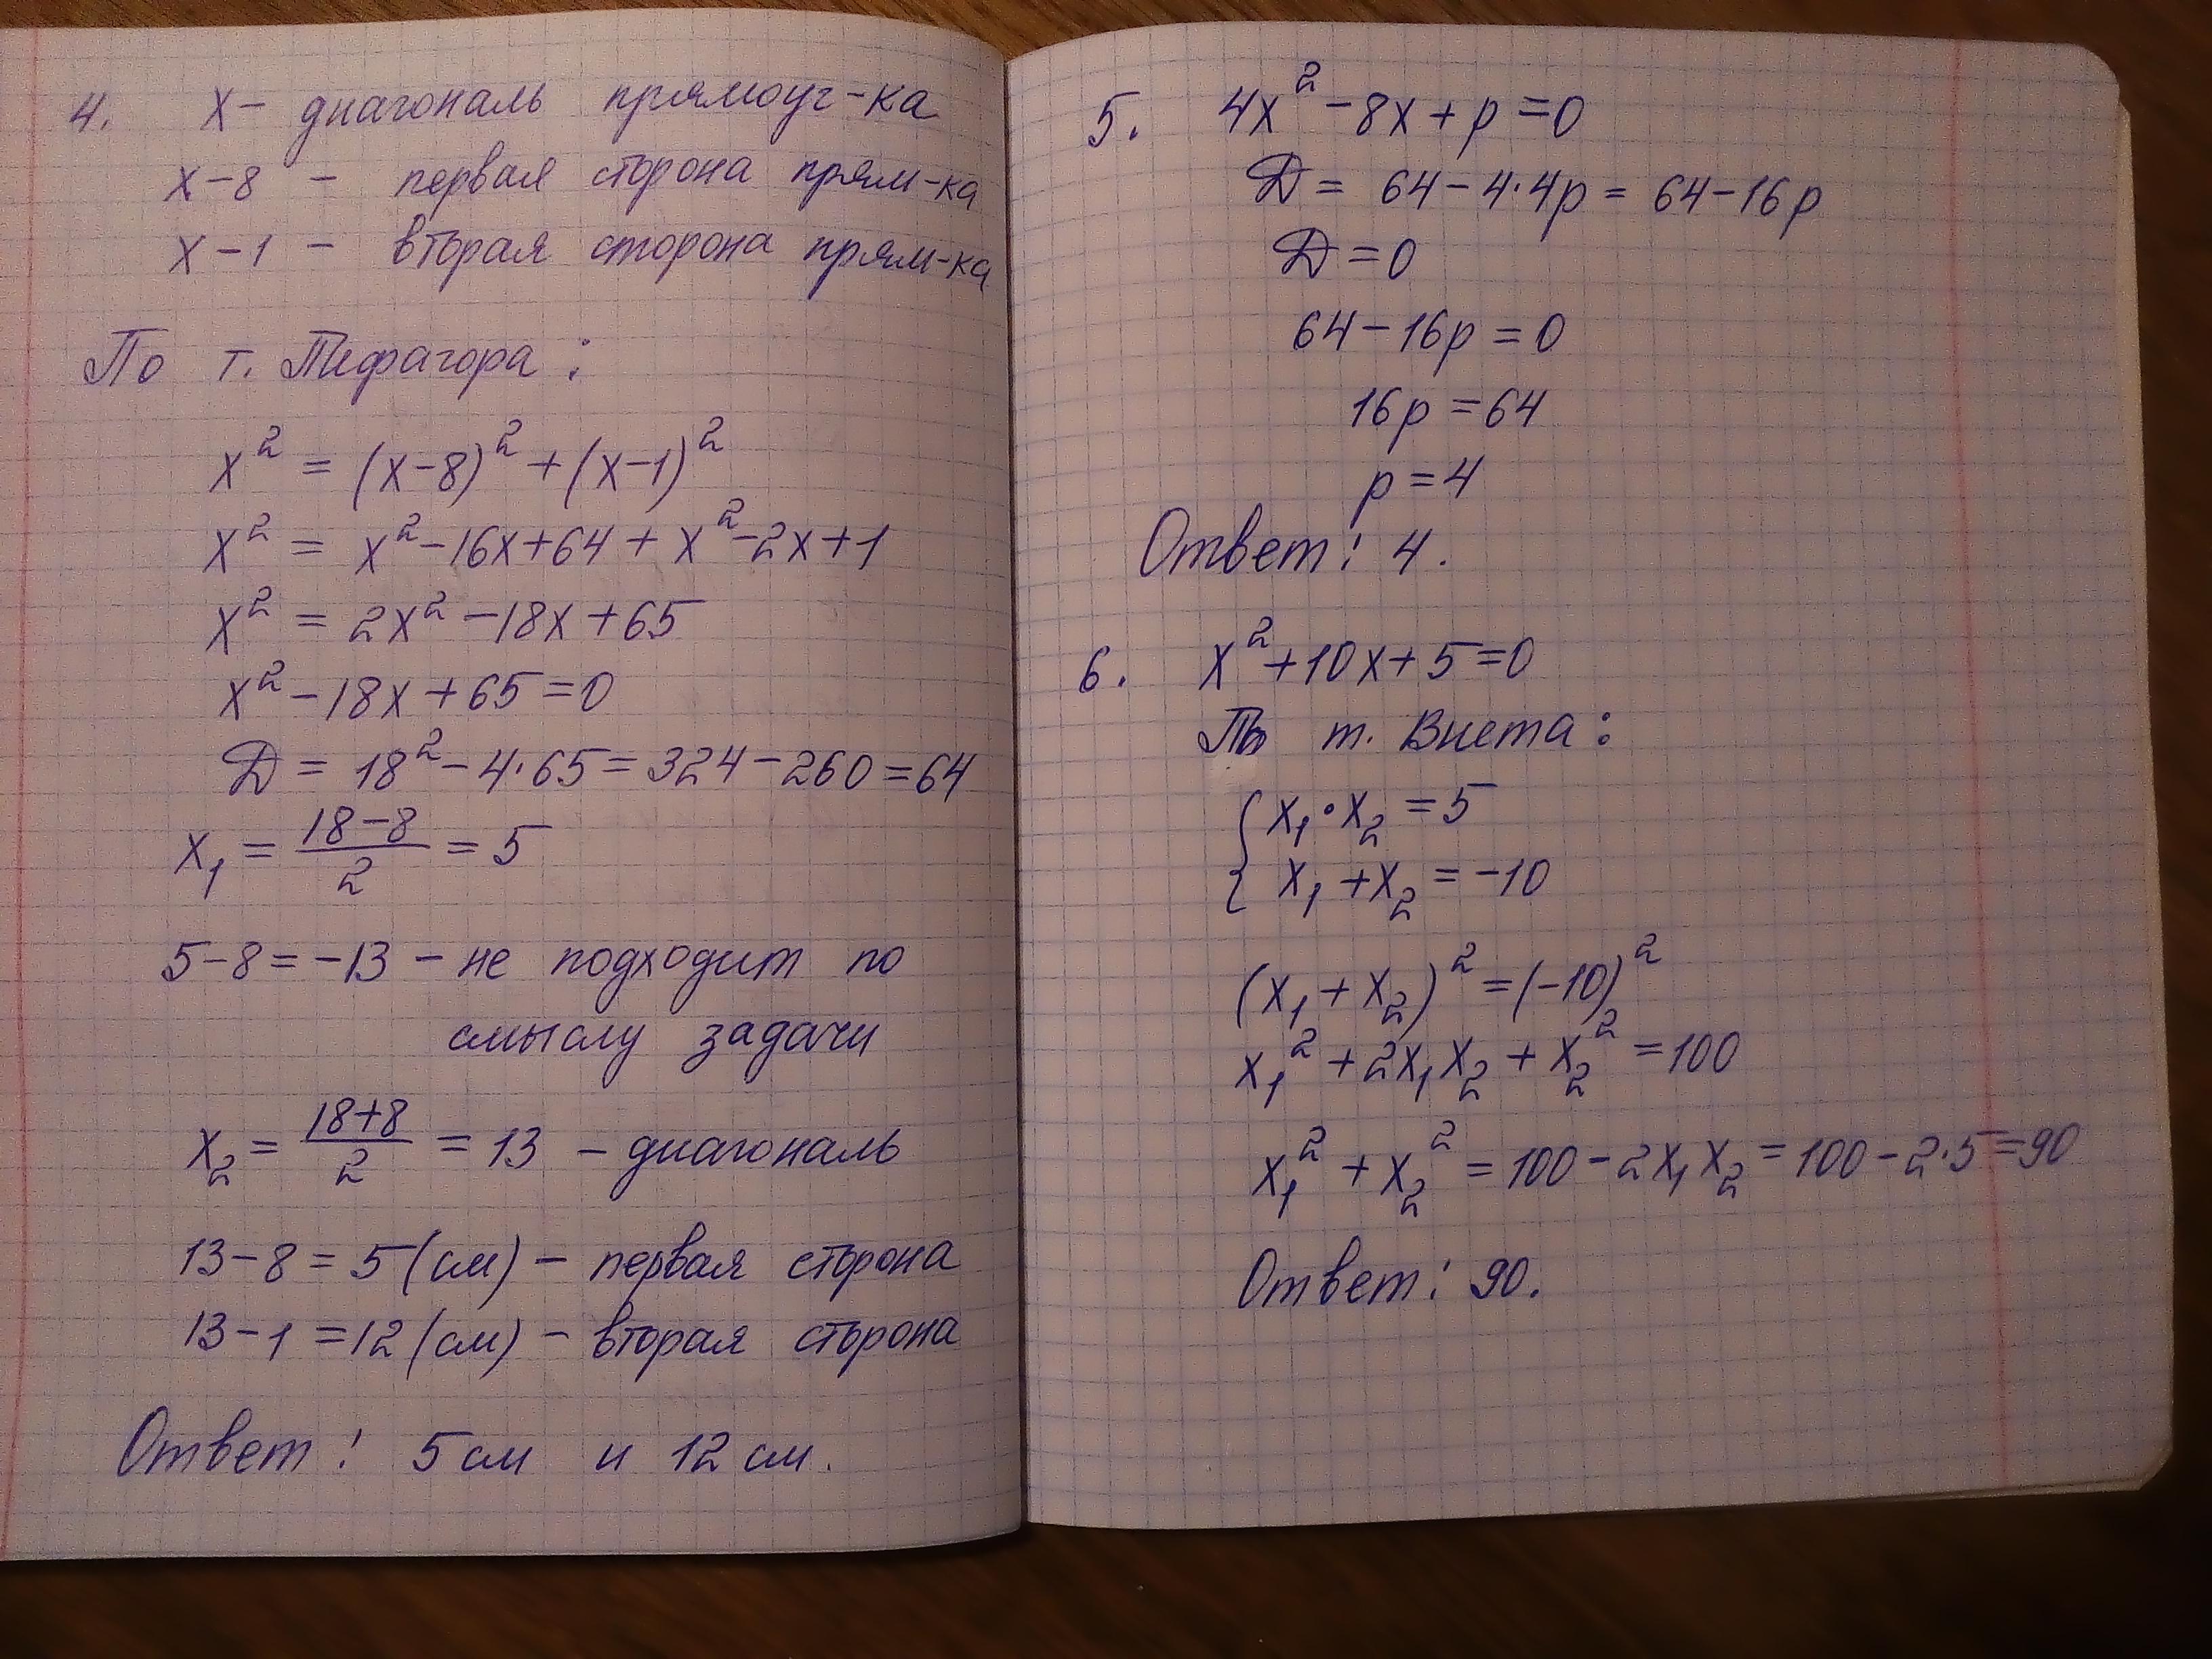 4. x – диагональ прямоуг-ка
x-8 – первая сторона прям-ка
x-1 – вторая сторона прям-ка
По т. Пифагора:
x² = (x-8)² + (x-1)²
x² = x²-16x+64 + x²-2x+1
x² = 2x²-18x+65
x²-18x+65=0
D = 18²-4·65=324-260=64
x₁ = (18-8)/2 = 5
5-8=-13 – не подходит по
смыслу задачи
x₂ = (18+8)/2 = 13 – диагональ
13-8=5(см) – первая сторона
13-1=12(см) – вторая сторона
Ответ: 5 см и 12 см.
5. 4x²-8x+p=0
D = 64-4·4p = 64-16p
D=0
64-16p=0
16p=64
p=4
Ответ: 4.
6. x²+10x+5=0
По т. Виета:
{ x₁·x₂ = 5
{ x₁+x₂ = -10
(x₁+x₂)²=(-10)²
x₁²+2x₁x₂+x₂²=100
x₁²+x₂²=100-2x₁x₂=100-2·5=90
Ответ: 90.